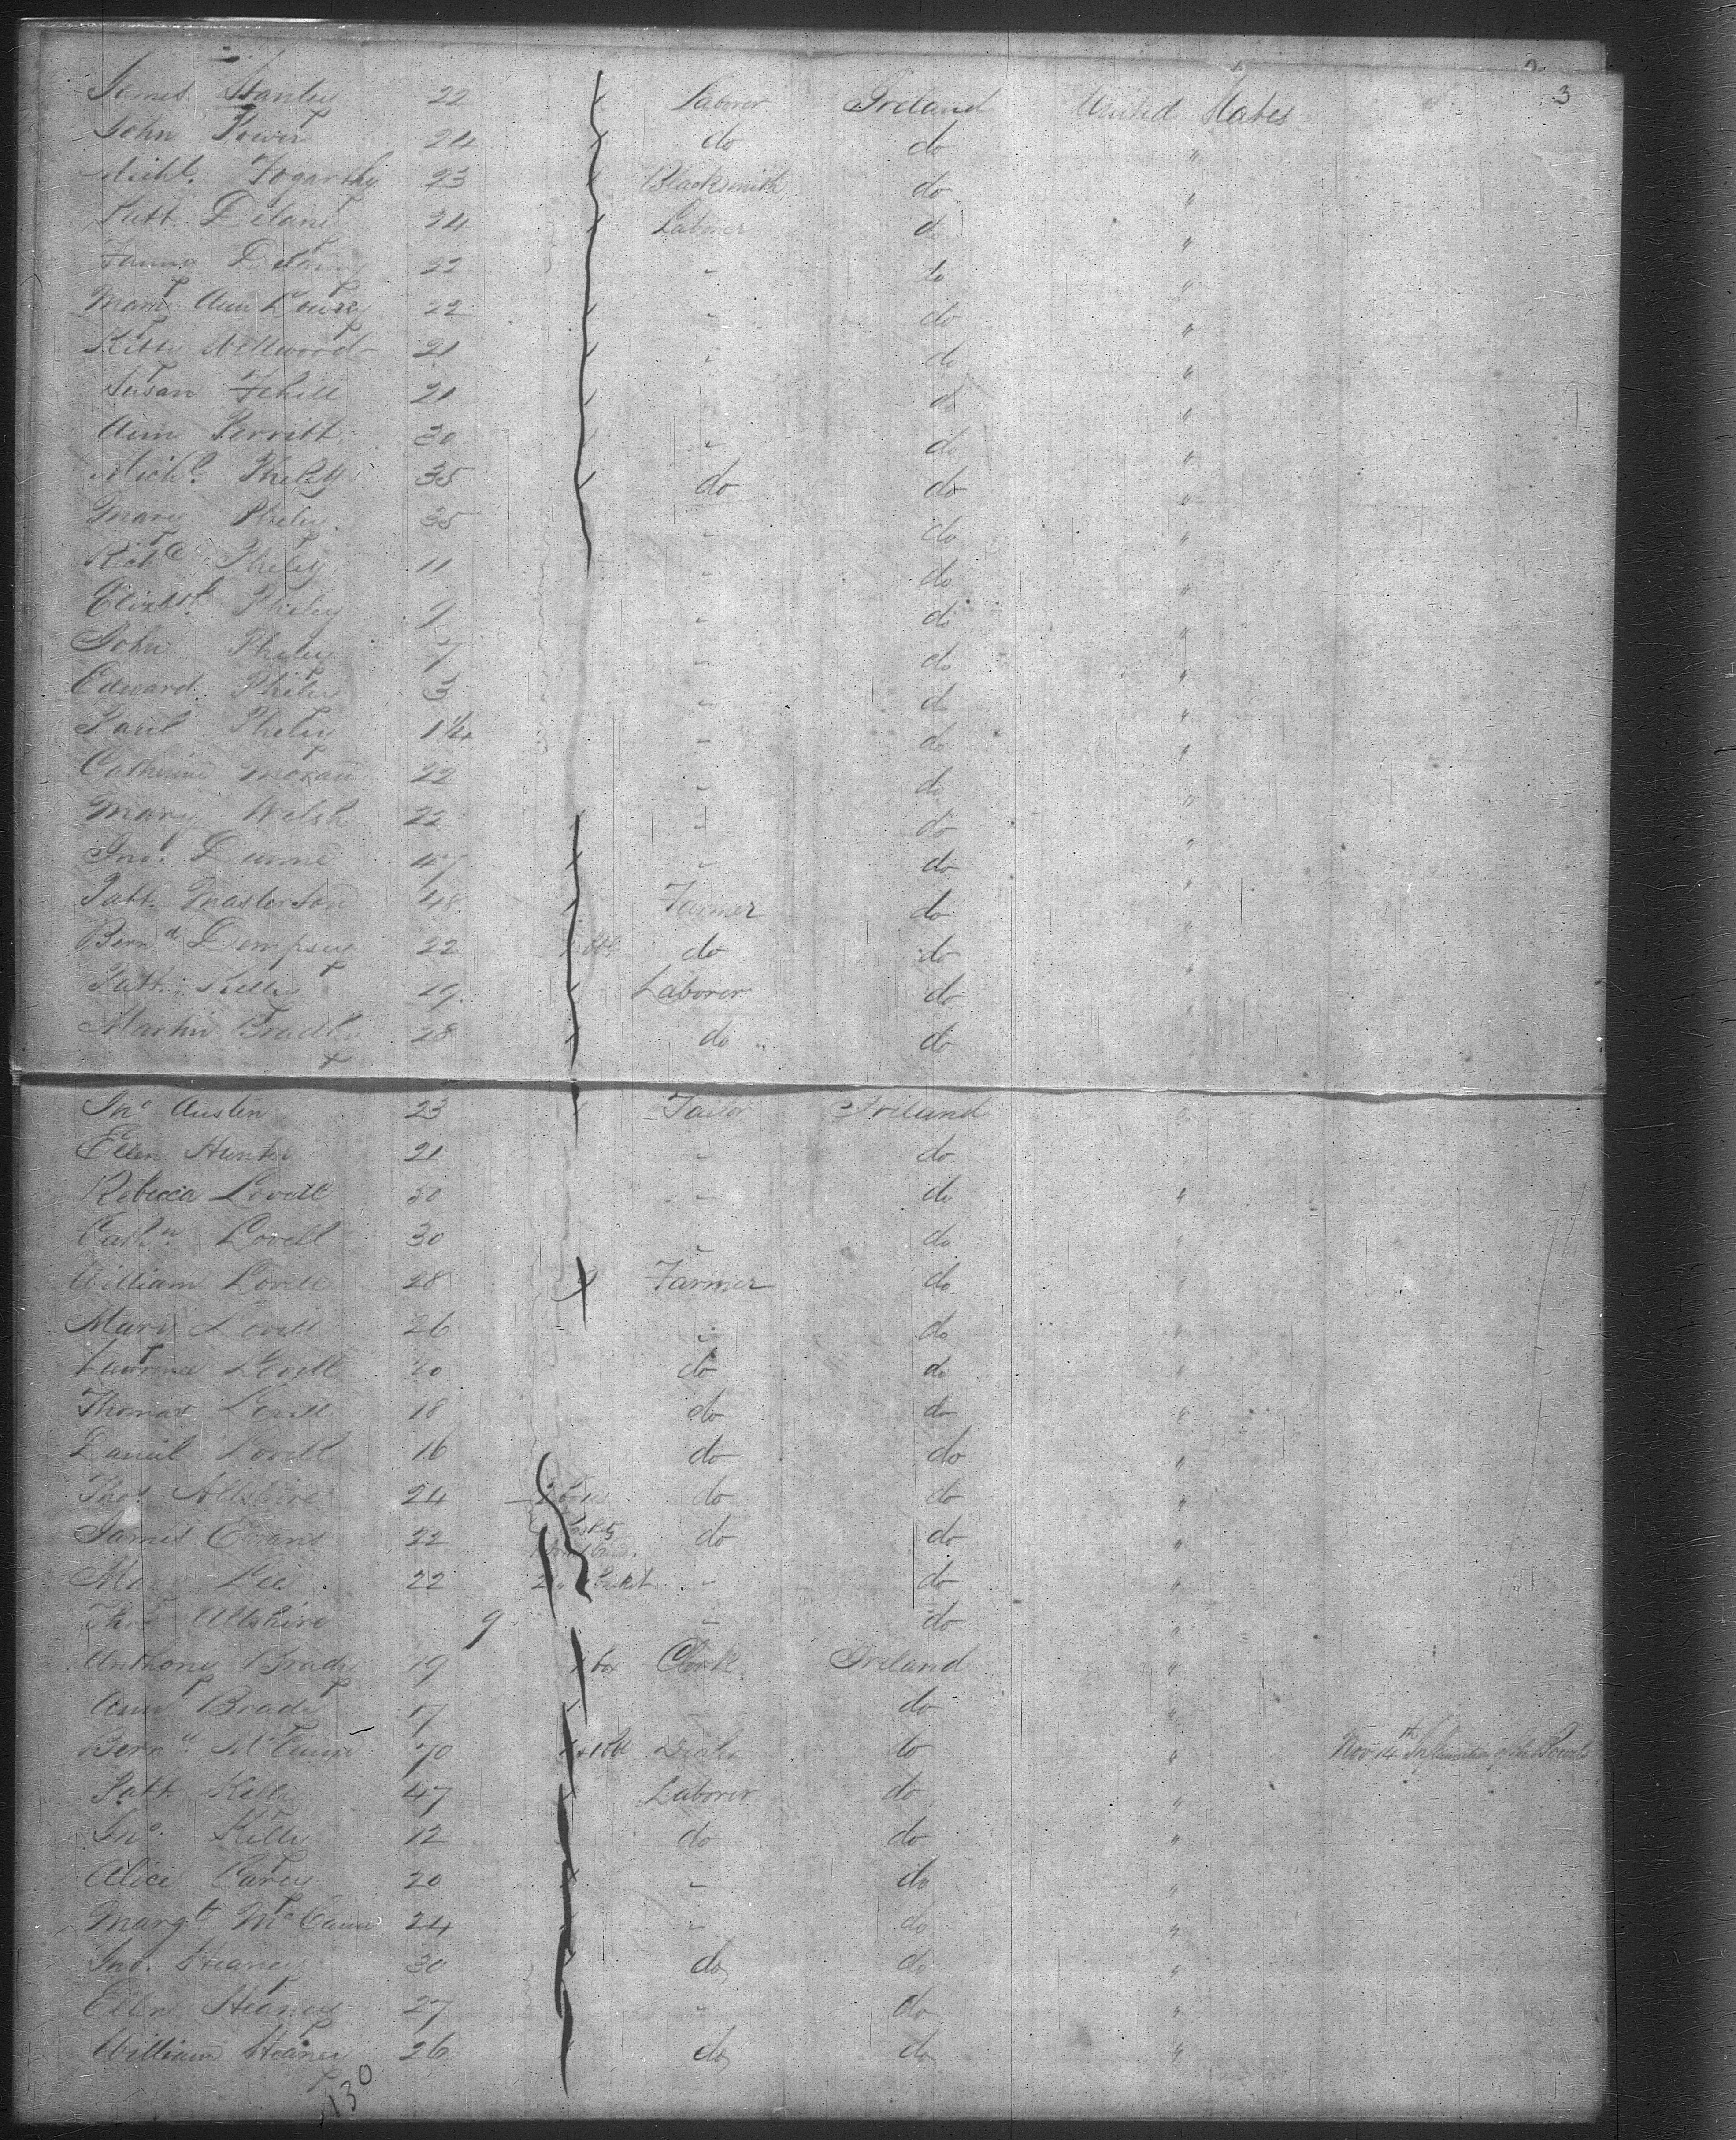 3
James Stanley 22 Laborer Ireland United States
John Power 24 do do "
Michl. Fogarthy 23 Blacksmith do "
Patt. Delany 24 Laborer do "
Fanny Delany 22 - do "
Ann 22 - do "
Kitty Wellwood 21 - do "
Susan Fehill 21 do "
Ann Perritt 30 - do "
Michl. Phelzy 35 do do "
Mary Pheley 35 - do "
Richd Pheley 11 - do "
Elizbt. Pheley 9 - do "
John Pheley 7 - do "
Edward Pheley 3 - do "
Pheley 1 1/4 - do "
Catherine Moran 22 - do "
Mary Welsh 22 - do "
Jno. Dunne 47 - do "
Patt. Masterson 48 Farmer do "
Bernd Dempsey 22 do do "
Patt. Kelly 19 Laborer do "
Martin Bradly 28 do do
Jno Austin 23 Tailor Ireland "
Ellen Hunter 21 - do
Rebecca Lovell 50 - do "
Cathn. Lovell 30 - do "
William Lovell 28 Farmer do "
Mary Lovell 26 - do "
Lawrence Lovell do do "
Thomas Lovell 18 do do "
Daniel Lovell 16 do do "
Thos. Allshire 24 do do "
James Evans 22 do do "
Lee 22 basket - do "
Thos Allshire 9 - do "
Anthony Brady 19 box Clerk Ireland "
Ann Brady 17 - do "
Bernd. 70 do " Nov 14th Inflamation of the Bowels
Patt Kelly 47 Laborer do "
Jno. Kelly 12 do do "
Alice Carey 20 - do "
Margt. McCann 24 - do "
Jno. Heaney 30 do do "
Ellen Heaney 27 - do "
William Heaney 26 do do "
130